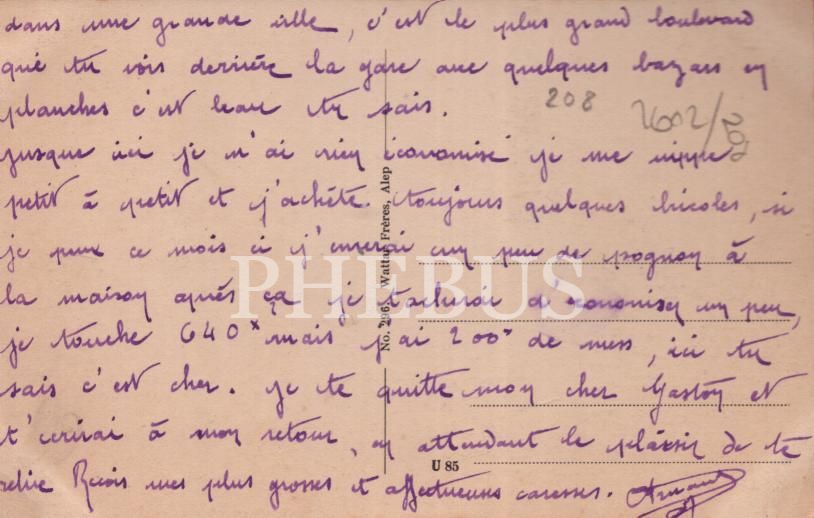 dans une grande ville, c'est le plus grand boulevard
que tu vois derrière la gare avec quelques bazars en
planches c'est beau tu sais.
208
2602/202
jusque ici je n'ai rien économisé je me nippe
petit à petit et j'achète toujours quelques bricoles, si
je peux ce mois ci j'enverai un peu de pognon à
la maison après ça je tacherai d'economiser un peu,
je touche 640x mais j'ai 200x de mess, ici tu
sais c'est cher. je te quitte mon cher Gaston et
t'ecrirai à mon retour, en attendant le plaisir de te
relire Reçois mes plus grosses et affectueuses caresses. Armand
No. 296, Wattar Frères, Alep
U 85
PHEBUS